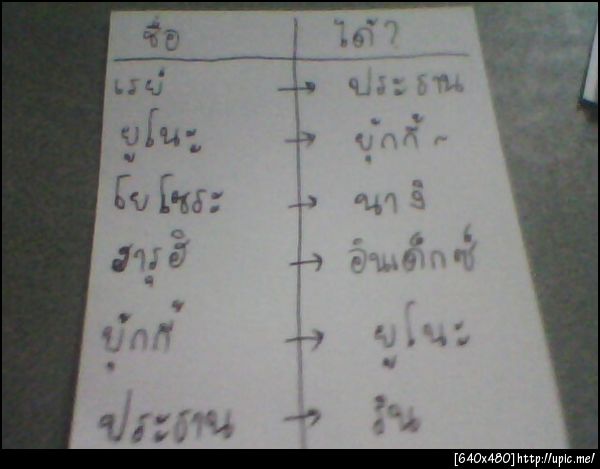 ชื่อ ได้?
เรย์ → ประธาน
ยูโนะ → ยุ้กกี้~
โยโซระ → นางิ
ฮารุฮิ → อินเด็กซ์
ยุ้กกี้ → ยูโนะ
ประธาน → ริน
[640x480]http://upic.me/